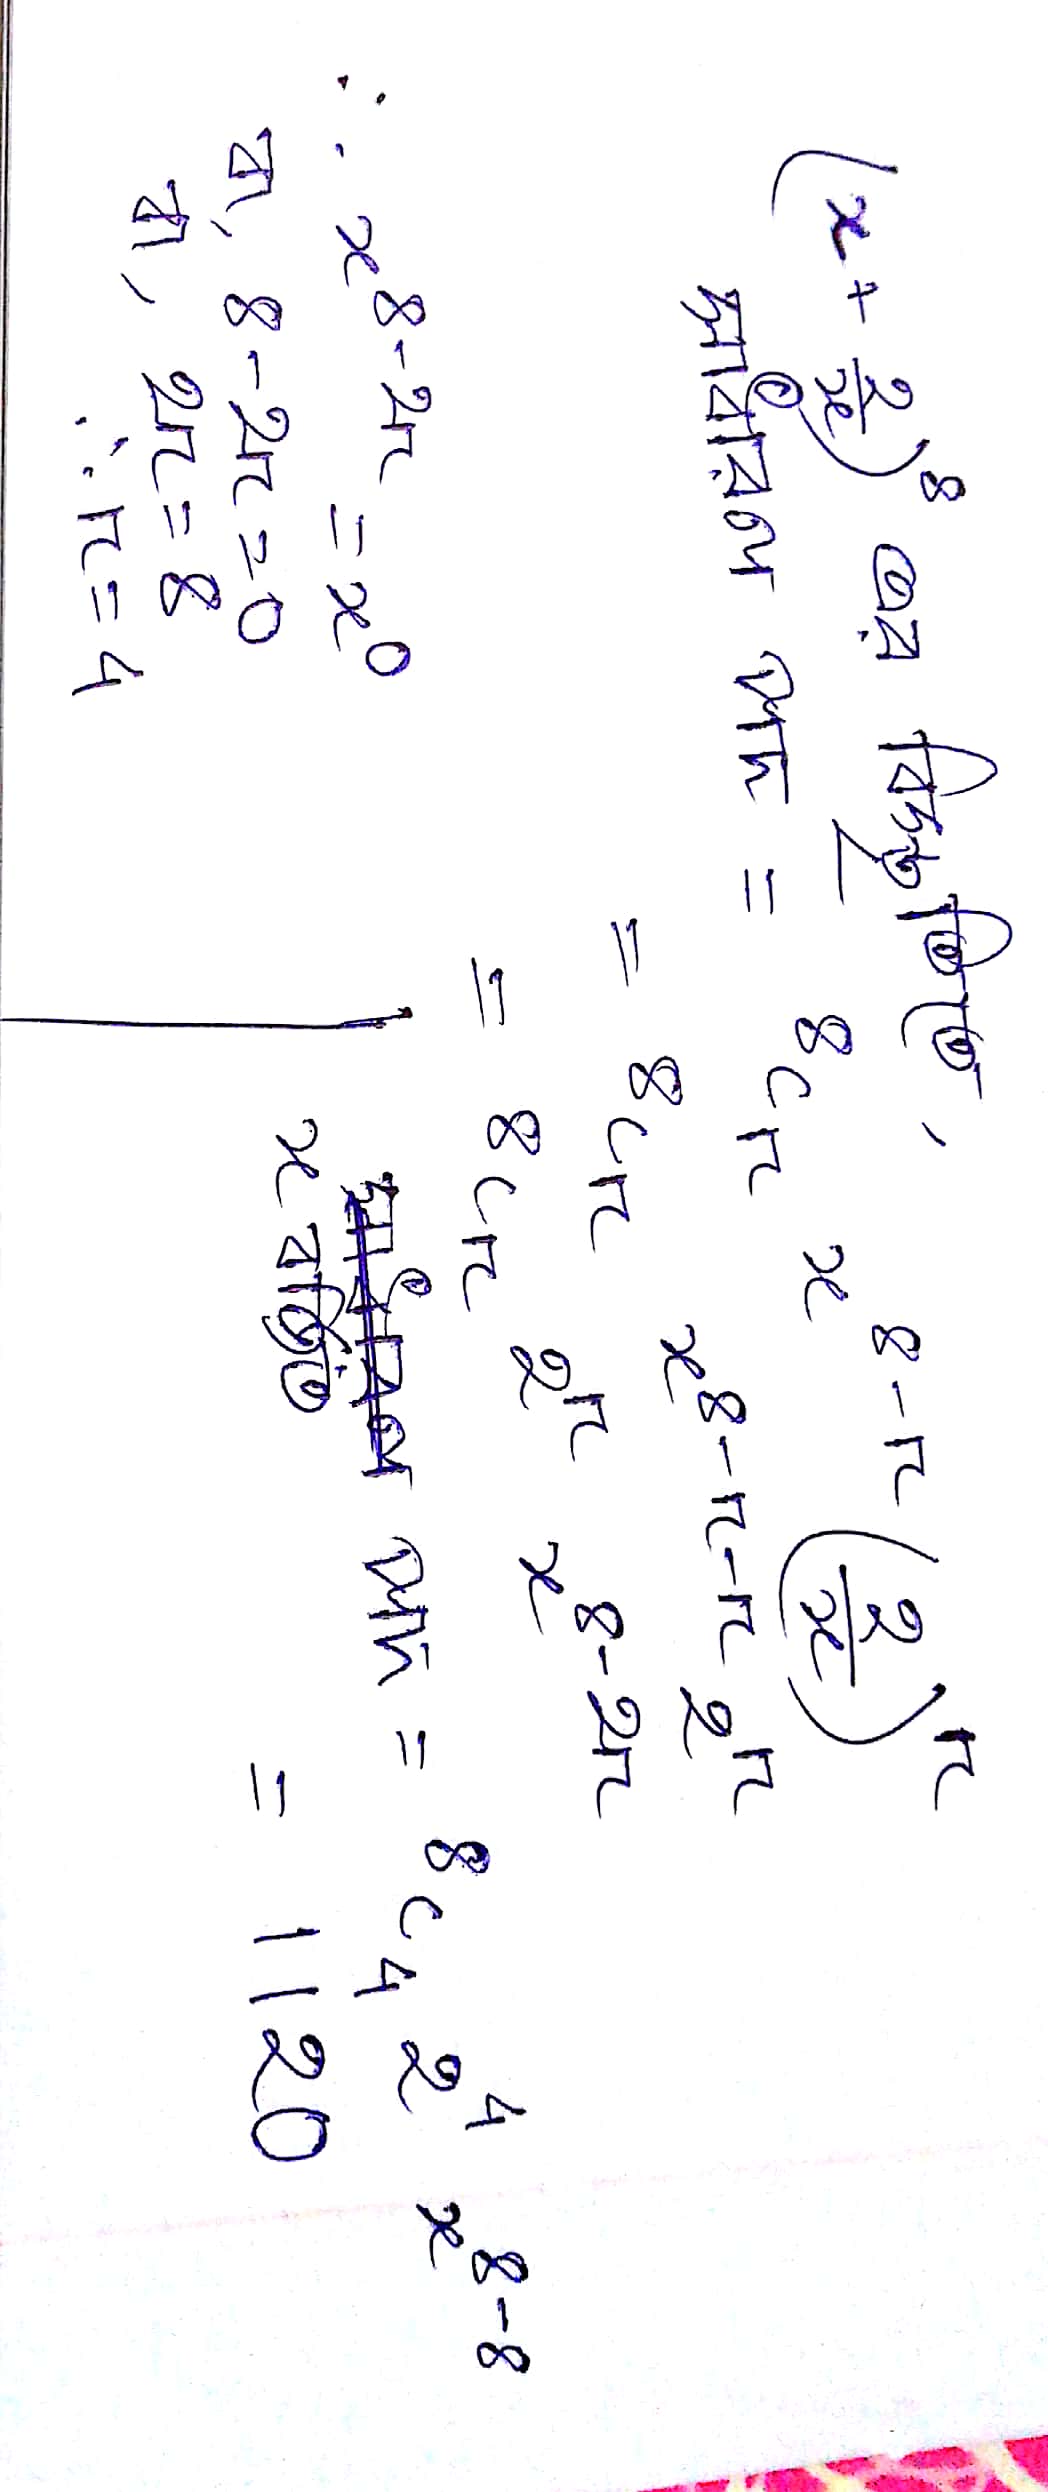 (x + 2/x)^8 এর বিস্তৃতিতে,
সাধারন পদ = 8Cr x^8-r (2/x)^r
= 8Cr x^8-r-r 2^r
= 8Cr 2^r x^8-2r
∴ x^8-2r = x^0
বা, 8-2r = 0
বা, 2r = 8
∴ r = 4
x বর্জিত পদ = 8C4 2^4 x^8-8
= 1120